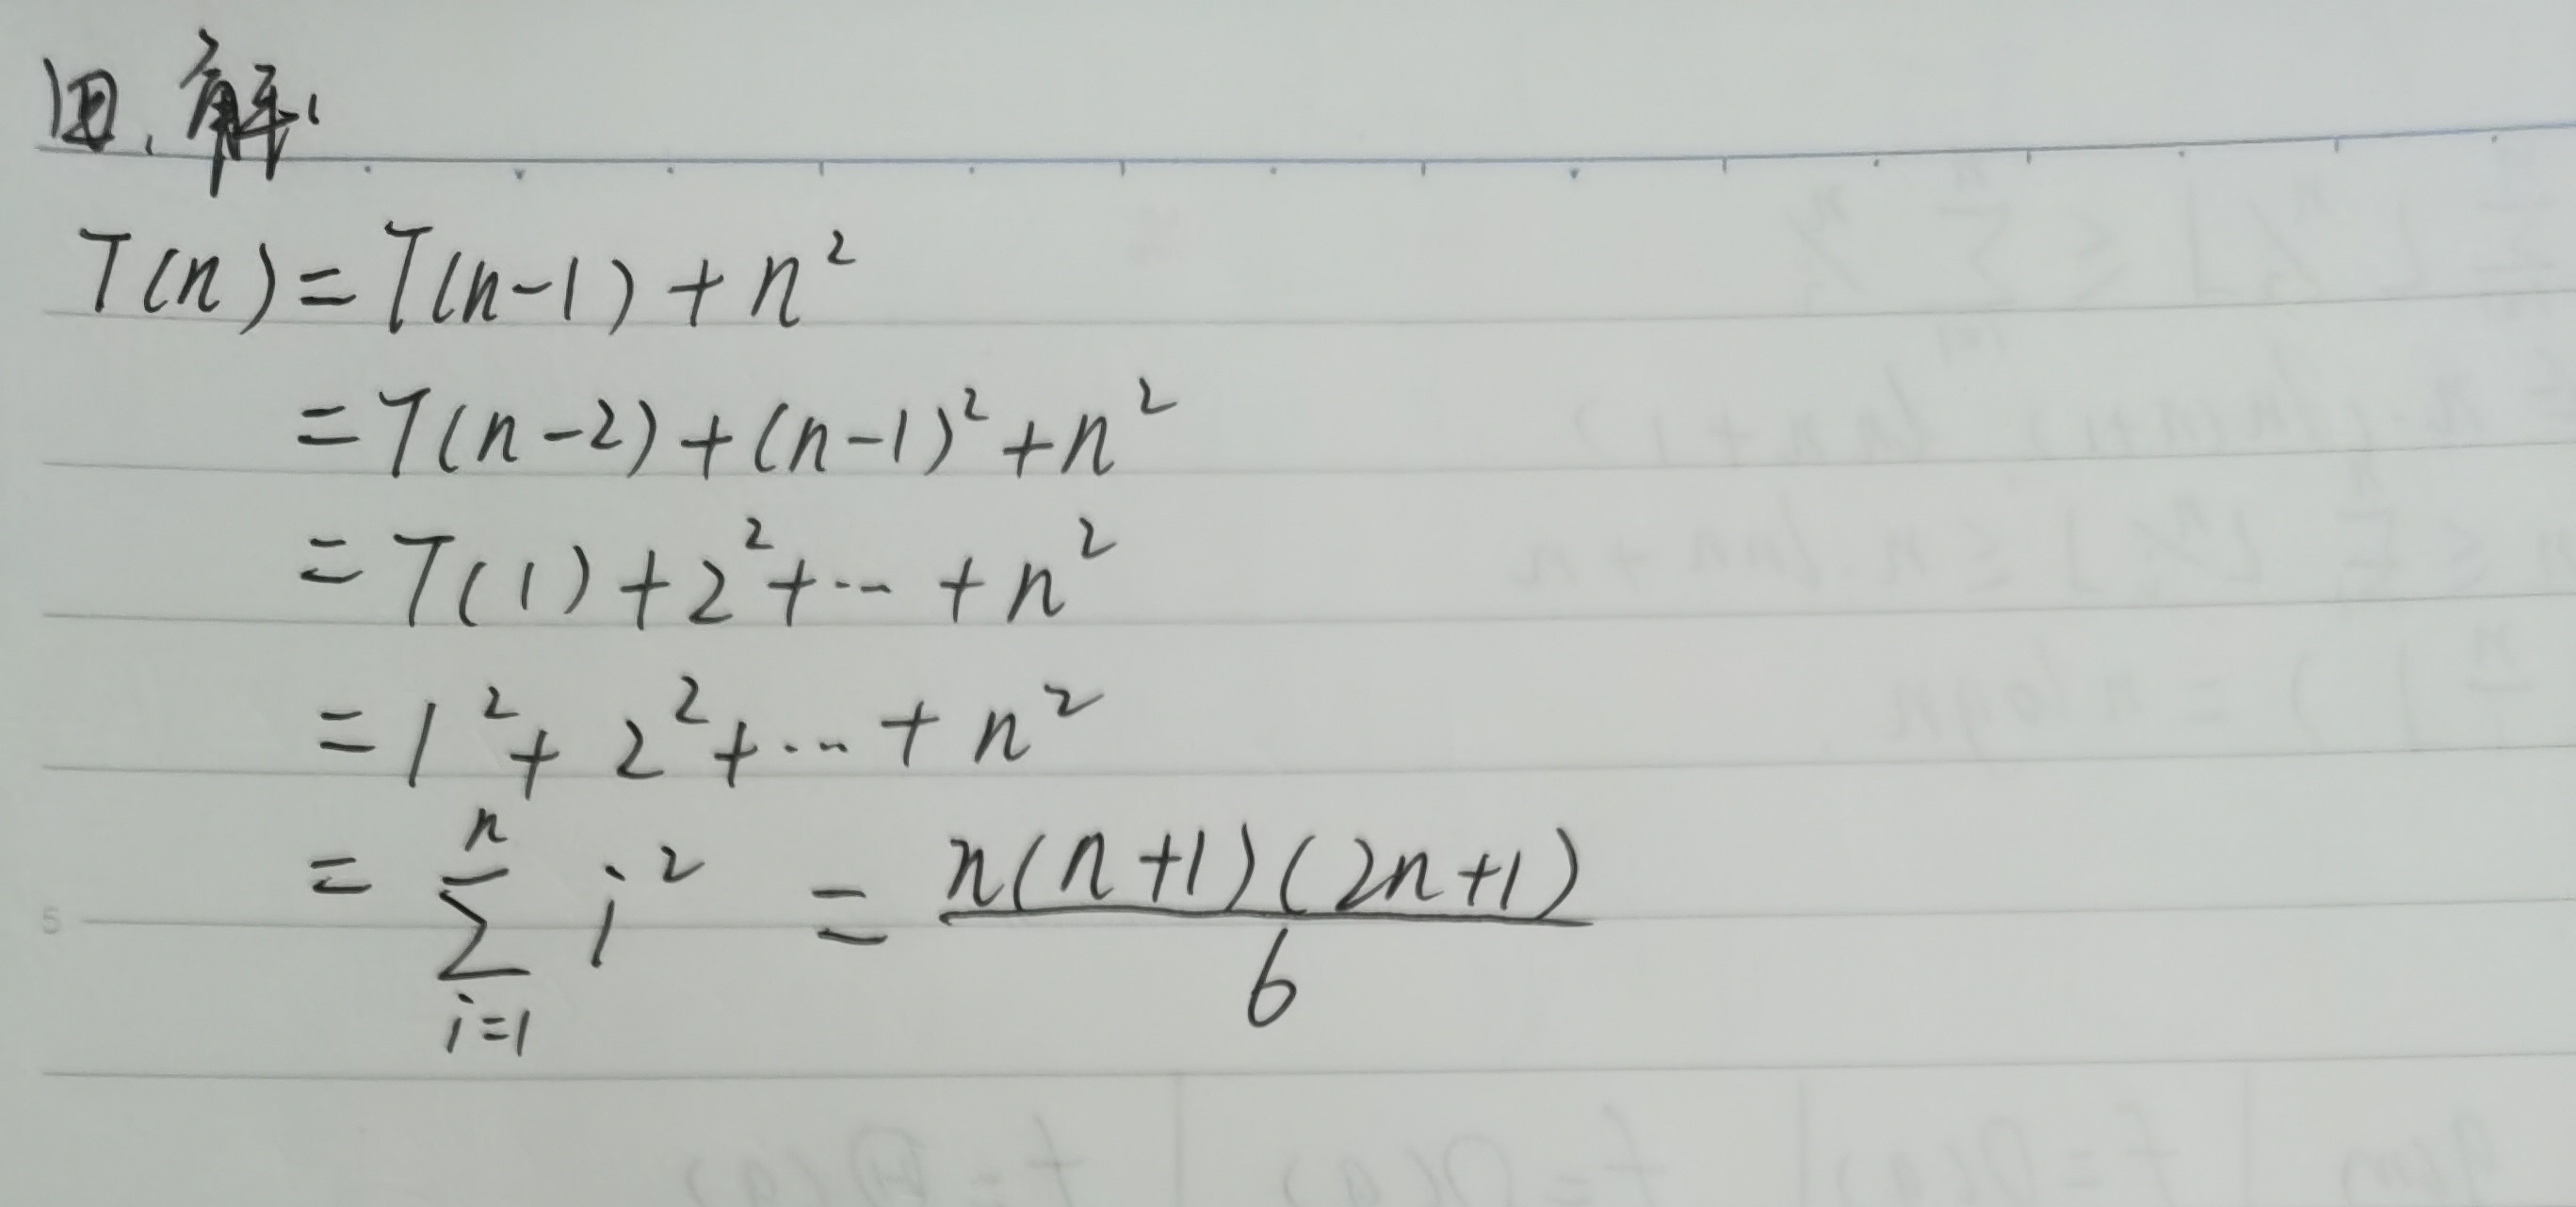 解:
T(n) = T(n-1) + n²
= T(n-2) + (n-1)² + n²
= T(1) + 2² + ... + n²
= 1² + 2² + ... + n²
= \sum_{i=1}^{n} i² = \frac{n(n+1)(2n+1)}{6}
5